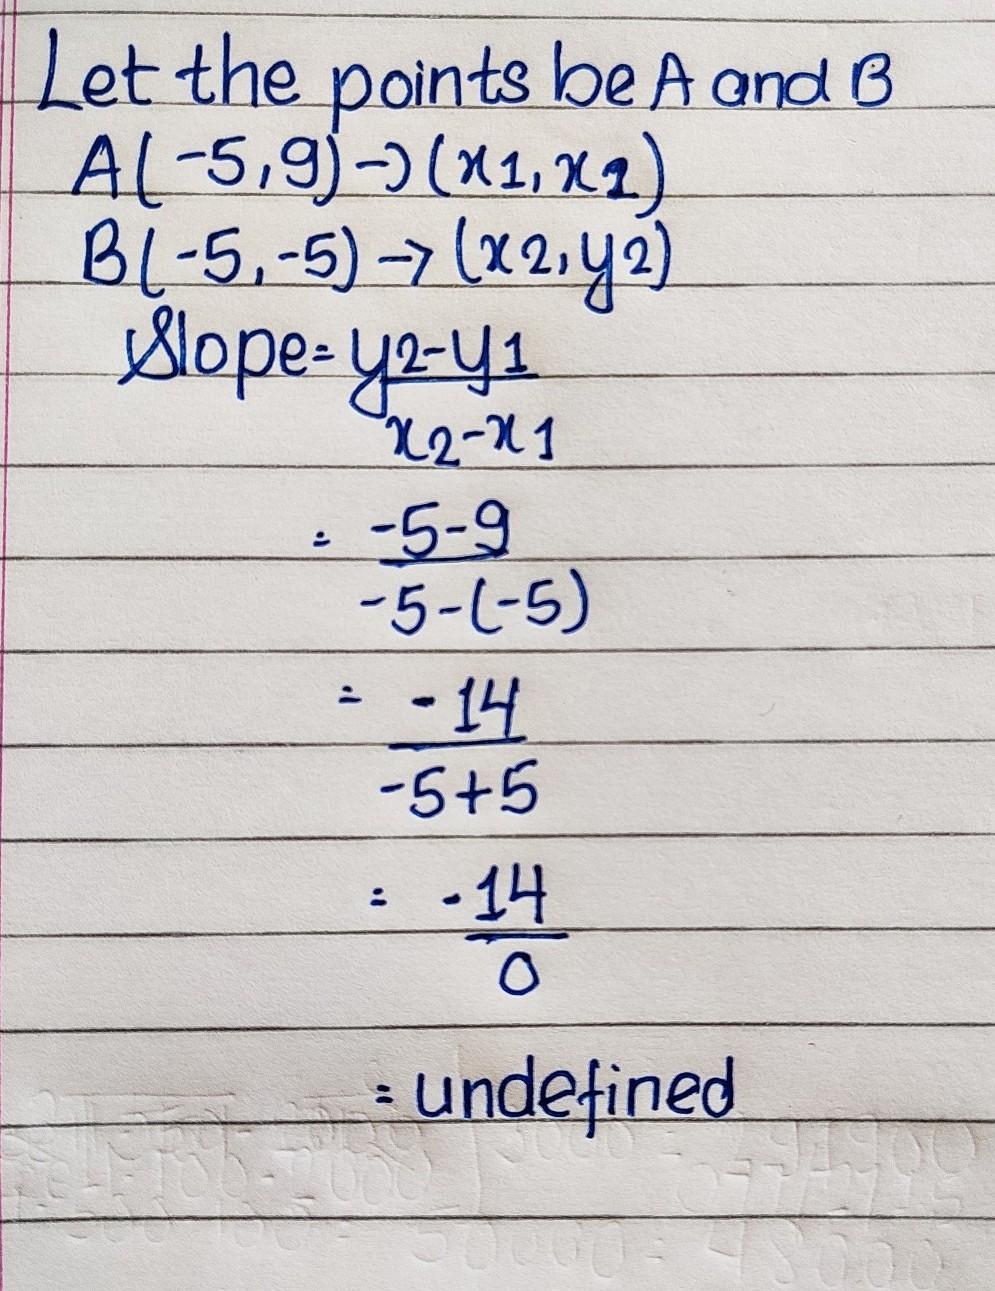 Let the points be A and B
A(-5,9)→(x1,x2)
B(-5,-5)→(x2,y2)
Slope=y2-y1
x2-x1
= -5-9
-5-(-5)
= -14
-5+5
= -14
0
= undefined